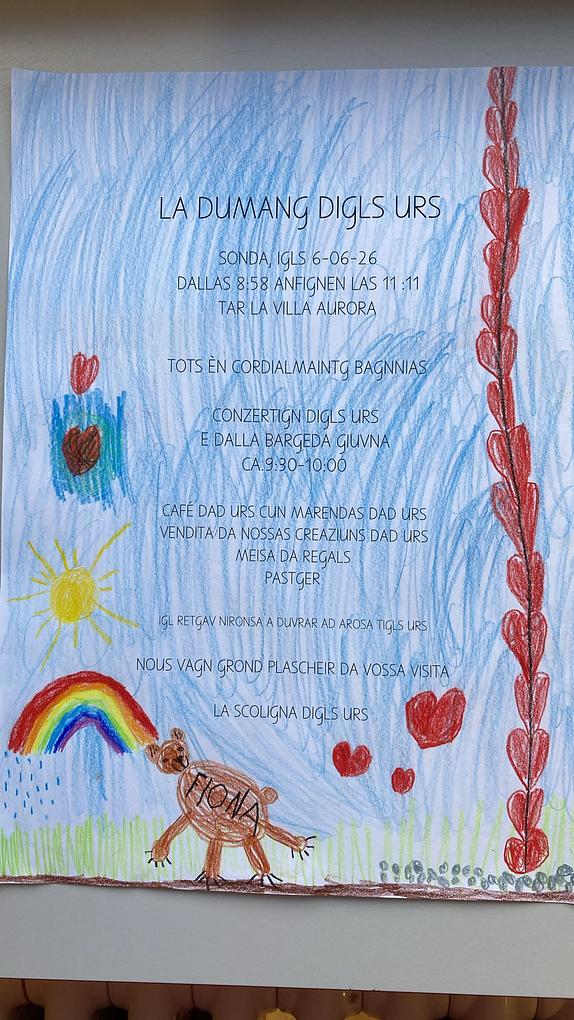 LA DUMANG DIGLS URS
SONDA, IGLS 6-06-26
DALLAS 8:58 ANFIGNEN LAS 11 :11
TAR LA VILLA AURORA
TOTS ÈN CORDIALMAINTG BAGNNIAS
CONZERTIGN DIGLS URS
E DALLA BARGEDA GIUVNA
CA.9:30-10:00
CAFÉ DAD URS CUN MARENDAS DAD URS
VENDITA DA NOSSAS CREAZIUNS DAD URS
MEISA DA REGALS
PASTGER
IGL RETGAV NIRONSA A DUVRAR AD AROSA TIGLS URS
NOUS VAGN GROND PLASCHEIR DA VOSSA VISITA
LA SCOLIGNA DIGLS URS
FIONA